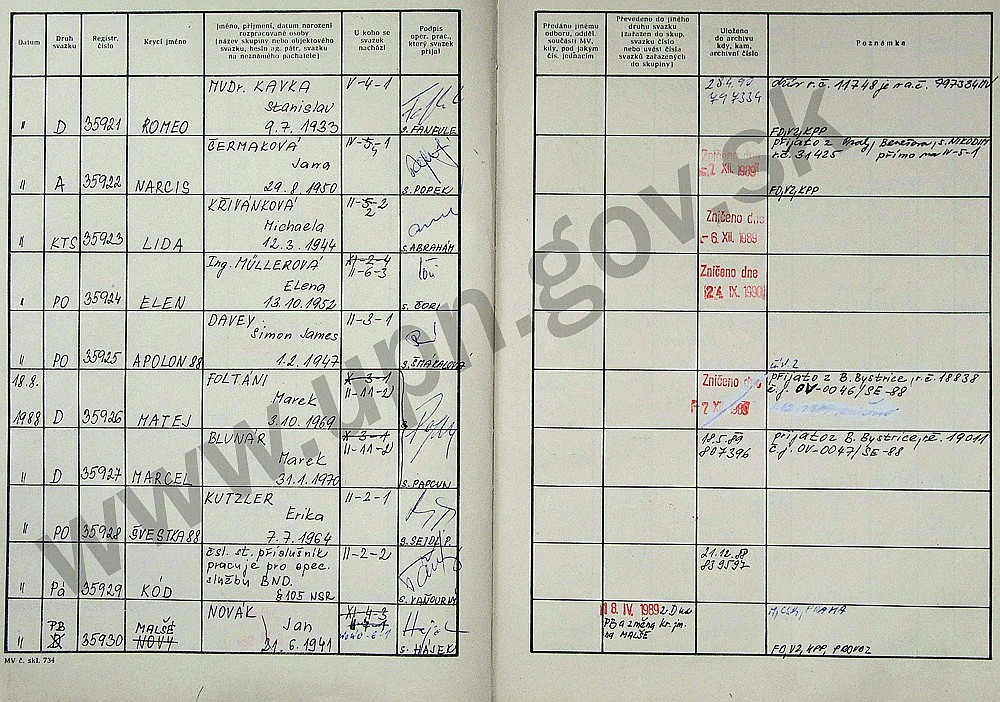 Datum
Druh svazku
Registr. číslo
Krycí jméno
Jméno, příjmení, datum narození
rozpracované osoby
(název skupiny nebo objektového
svazku, heslo ag. pátr. svazku
na neznámého pachatele)
U koho se
svazek
nachází
Podpis
oper. prac.,
který svazek
přijal
Předáno jinému
odboru, odděl.
součásti MV,
kdy, pod jakým
čís. jednacím
Převedeno do jiného
druhu svazku
(zařazen do skup.
svazku číslo
nebo uvést čísla
svazků zařazených
do skupiny)
Uloženo
do archivu
kdy, kam,
archivní číslo
Poznámka
MUDr. KAVKA V-4-1 28.4.90
Stanislav 797334
" D 35921 ROMEO 9.7. 1933 S. FANFULE FO, VZ, KPP
ČERMAKOVÁ IV-5-1 přijato z
Jana Zničeno dne r.č. 31425 přímo na IV-5-1
" A 35922 NARCIS 29.8. 1950 S. POPEK -7. XII. 1989 FO, VZ, KPP
KŘIVÁNKOVÁ II-5-2
2
Michaela Zničeno dne
" KTS 35923 LIDA 12.3. 1944 S. ABRAHÁM -6. XII. 1989
Ing. MÜLLEROVÁ XI-2-4
II-6-3
Elena Zničeno dne
" PO 35924 ELEN 13.10.1952 S. ČORI 24. IX. 1990
DAVEY II-3-1
Simon James
" PO 35925 APOLON 88 1.2. 1947 S. ŠMAKALOVÁ
18.8. FOLTÁNI X-3-1 přijato z B. Bystrice, r.č. 18838
Marek II-11-2 Zničeno dne č.j. OV-0046/SE-88
1988 D 35926 MATEJ 3.10.1969
BLUNÁR X-3-1 18.5.89 přijato z B. Bystrice, r.č. 19011
Marek II-11-2 807396 č.j. OV-0047/SE-88
" D 35927 MARCEL 31.1.1970 S. PAPCUN
KUTZLER II-2-1
Erika
" PO 35928 ŠVESTKA 88 7.7. 1964 S. SEJDL P.
čsl. st. příslušník II-2-2 21.12.88
pracuje pro spec. 839597
službu BND.
" Pá 35929 KÓD §105 NSR S. VAŇOURNÝ
NOVÁK XI-4-3 18. IV. 1989 z D na
PB MALŠE Jan PB a změna kr. jm.
" 35930 NOVÝ 21.6.1941 S. HÁJEK na MALŠE FO, VZ, KPP, PROVOZ
MV č. skl. 734
www.upn.gov.sk